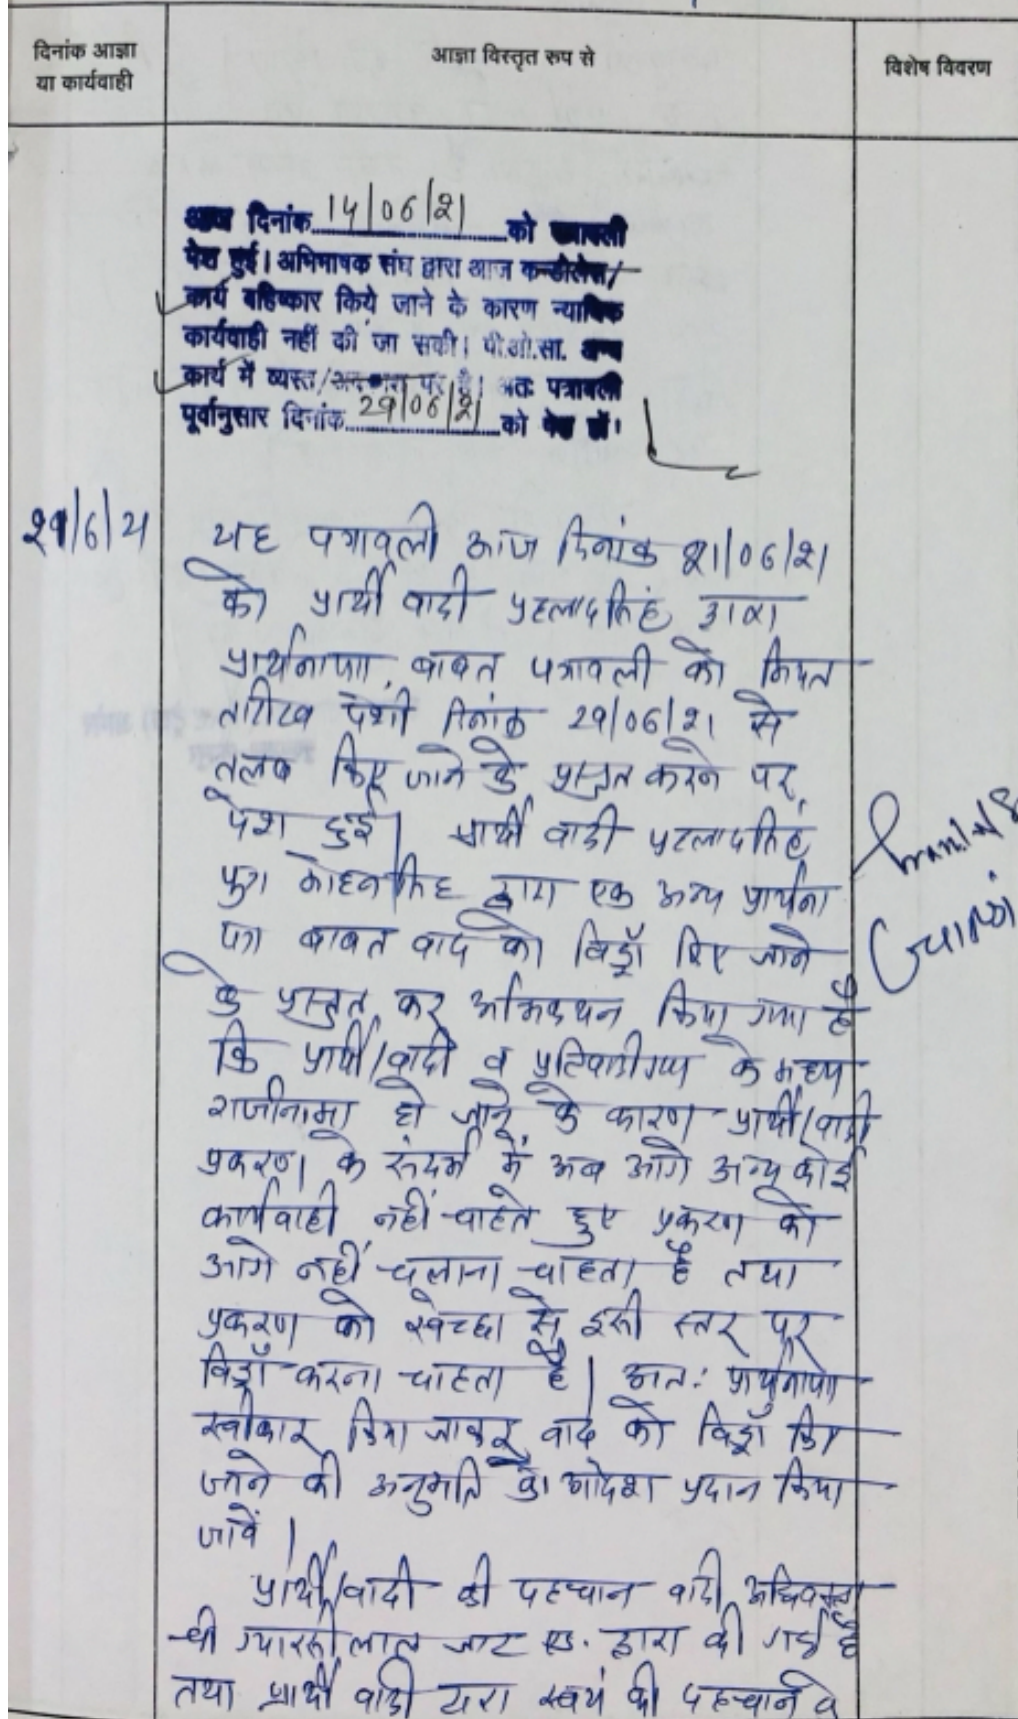 दिनांक आज्ञा
या कार्यवाही
आज्ञा विस्तृत रूप से
विशेष विवरण
आज दिनांक 14/06/21 को पत्रावली
पेश हुई। अभिभाषक संघ द्वारा आज कन्डोलेंस/
कार्य बहिष्कार किये जाने के कारण न्यायिक
कार्यवाही नहीं की जा सकी। पी.ओ.सा. अन्य
कार्य में व्यस्त/अवकाश पर है। अतः पत्रावली
पूर्वानुसार दिनांक 29/06/21 को पेश हों।
21/6/21
यह पत्रावली आज दिनांक 21/06/21
को प्रार्थी वादी प्रहलादसिंह द्वारा
प्रार्थनापत्र बाबत पत्रावली को नियत
तारीख पेशी दिनांक 29/06/21 से
तलब किए जाने के प्रस्तुत करने पर
पेश हुई। प्रार्थी वादी प्रहलादसिंह
पुत्र मोहनसिंह द्वारा एक अन्य प्रार्थना
पत्र बाबत वाद को विड्रॉ किए जाने
के प्रस्तुत कर अभिकथन किया गया है
कि प्रार्थी/वादी व प्रतिवादीगण के मध्य
राजीनामा हो जाने के कारण प्रार्थी/वादी
प्रकरण के संदर्भ में अब आगे अन्य कोई
कार्यवाही नहीं चाहते हुए प्रकरण को
आगे नहीं चलाना चाहता है तथा
प्रकरण को स्वेच्छा से इसी स्तर पर
विड्रॉ करना चाहता है। अतः प्रार्थनापत्र
स्वीकार किया जाकर वाद को विड्रॉ किए
जाने की अनुमति के आदेश प्रदान किया
जावें।
प्रार्थी/वादी की पहचान वादी अधिवक्ता
श्री ग्यारसीलाल जाट एड. द्वारा की गई है
तथा प्रार्थी वादी द्वारा स्वयं की पहचान के